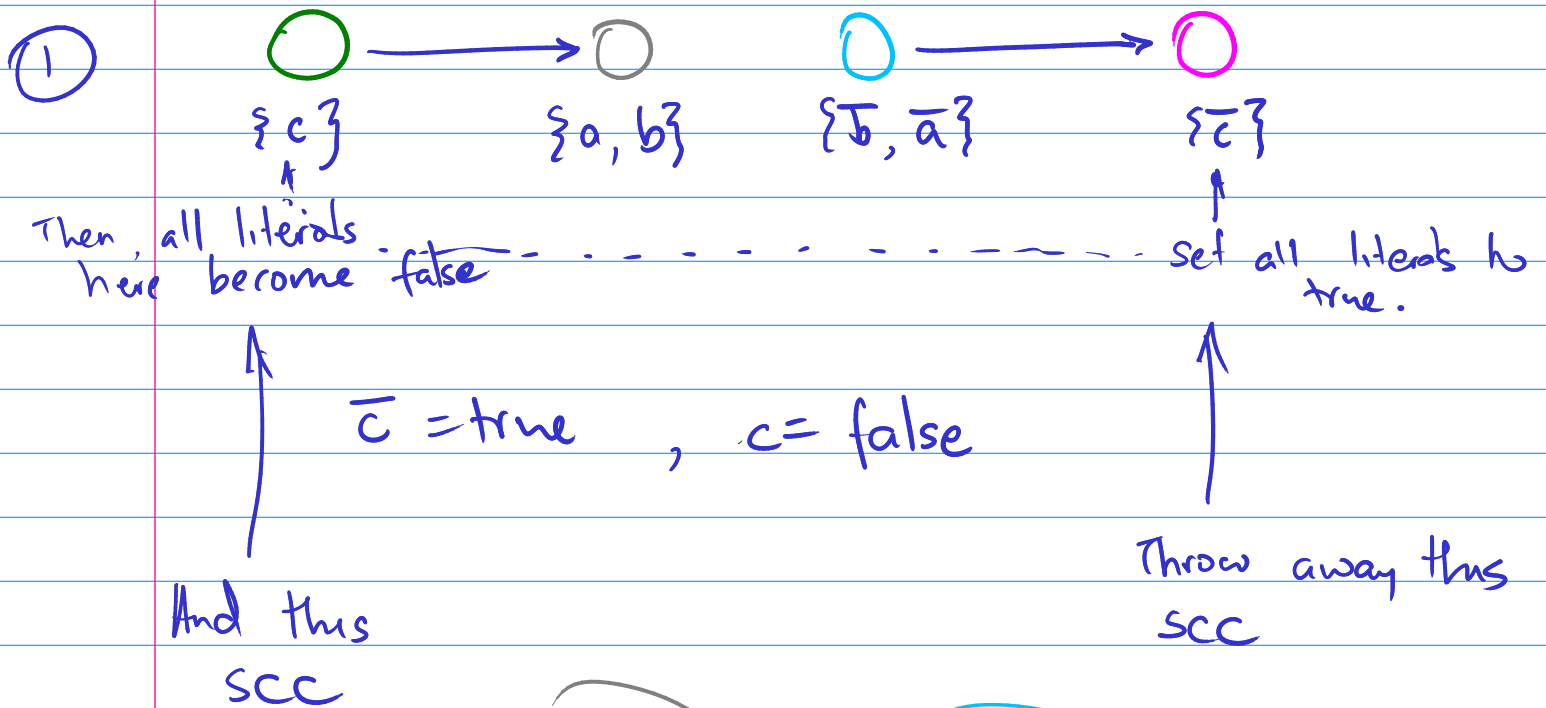 1
{c} {a, b} {b̅, a̅} {c̅}
Then, all literals
here become false
set all literals to
true.
c̅ = true , c = false
Throw away this
SCC
And this
SCC